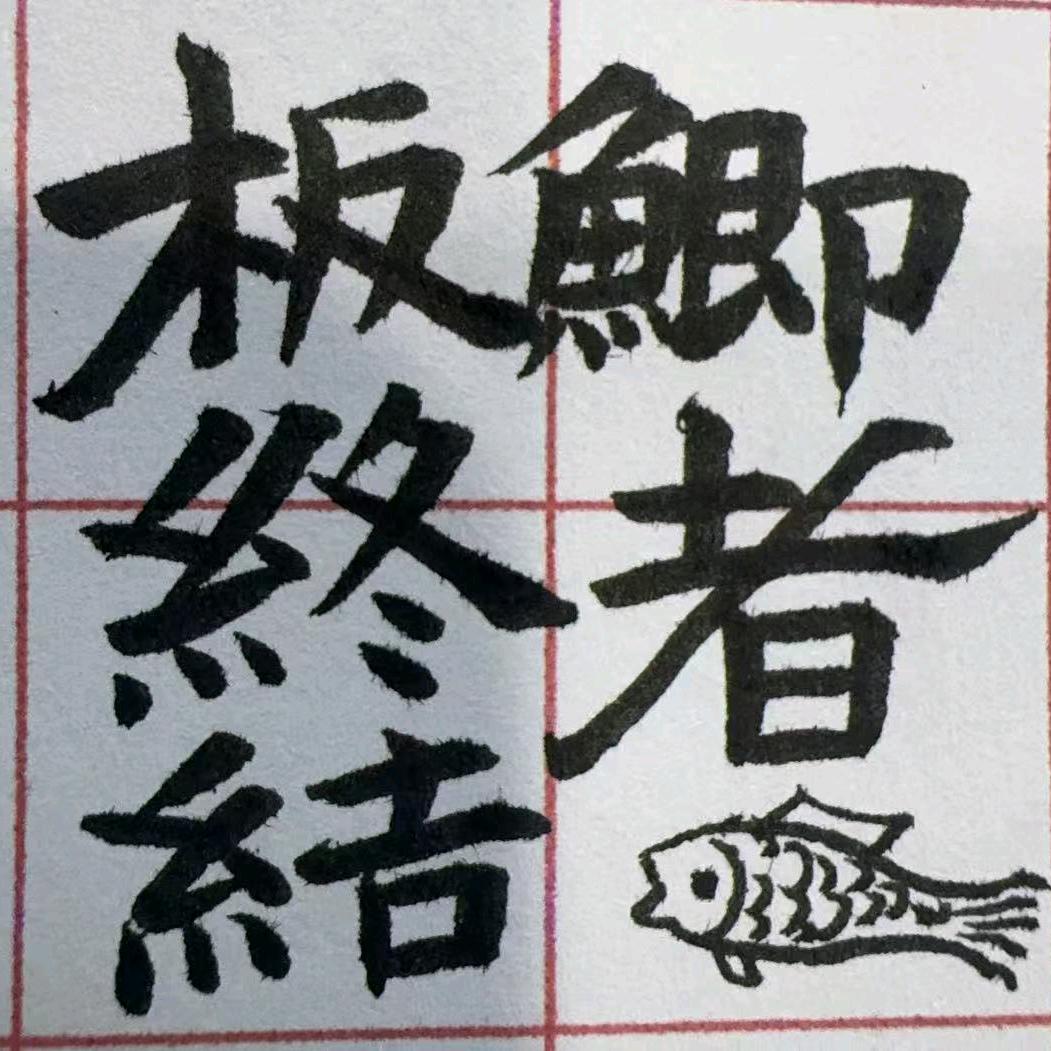 板鯽
終結
者